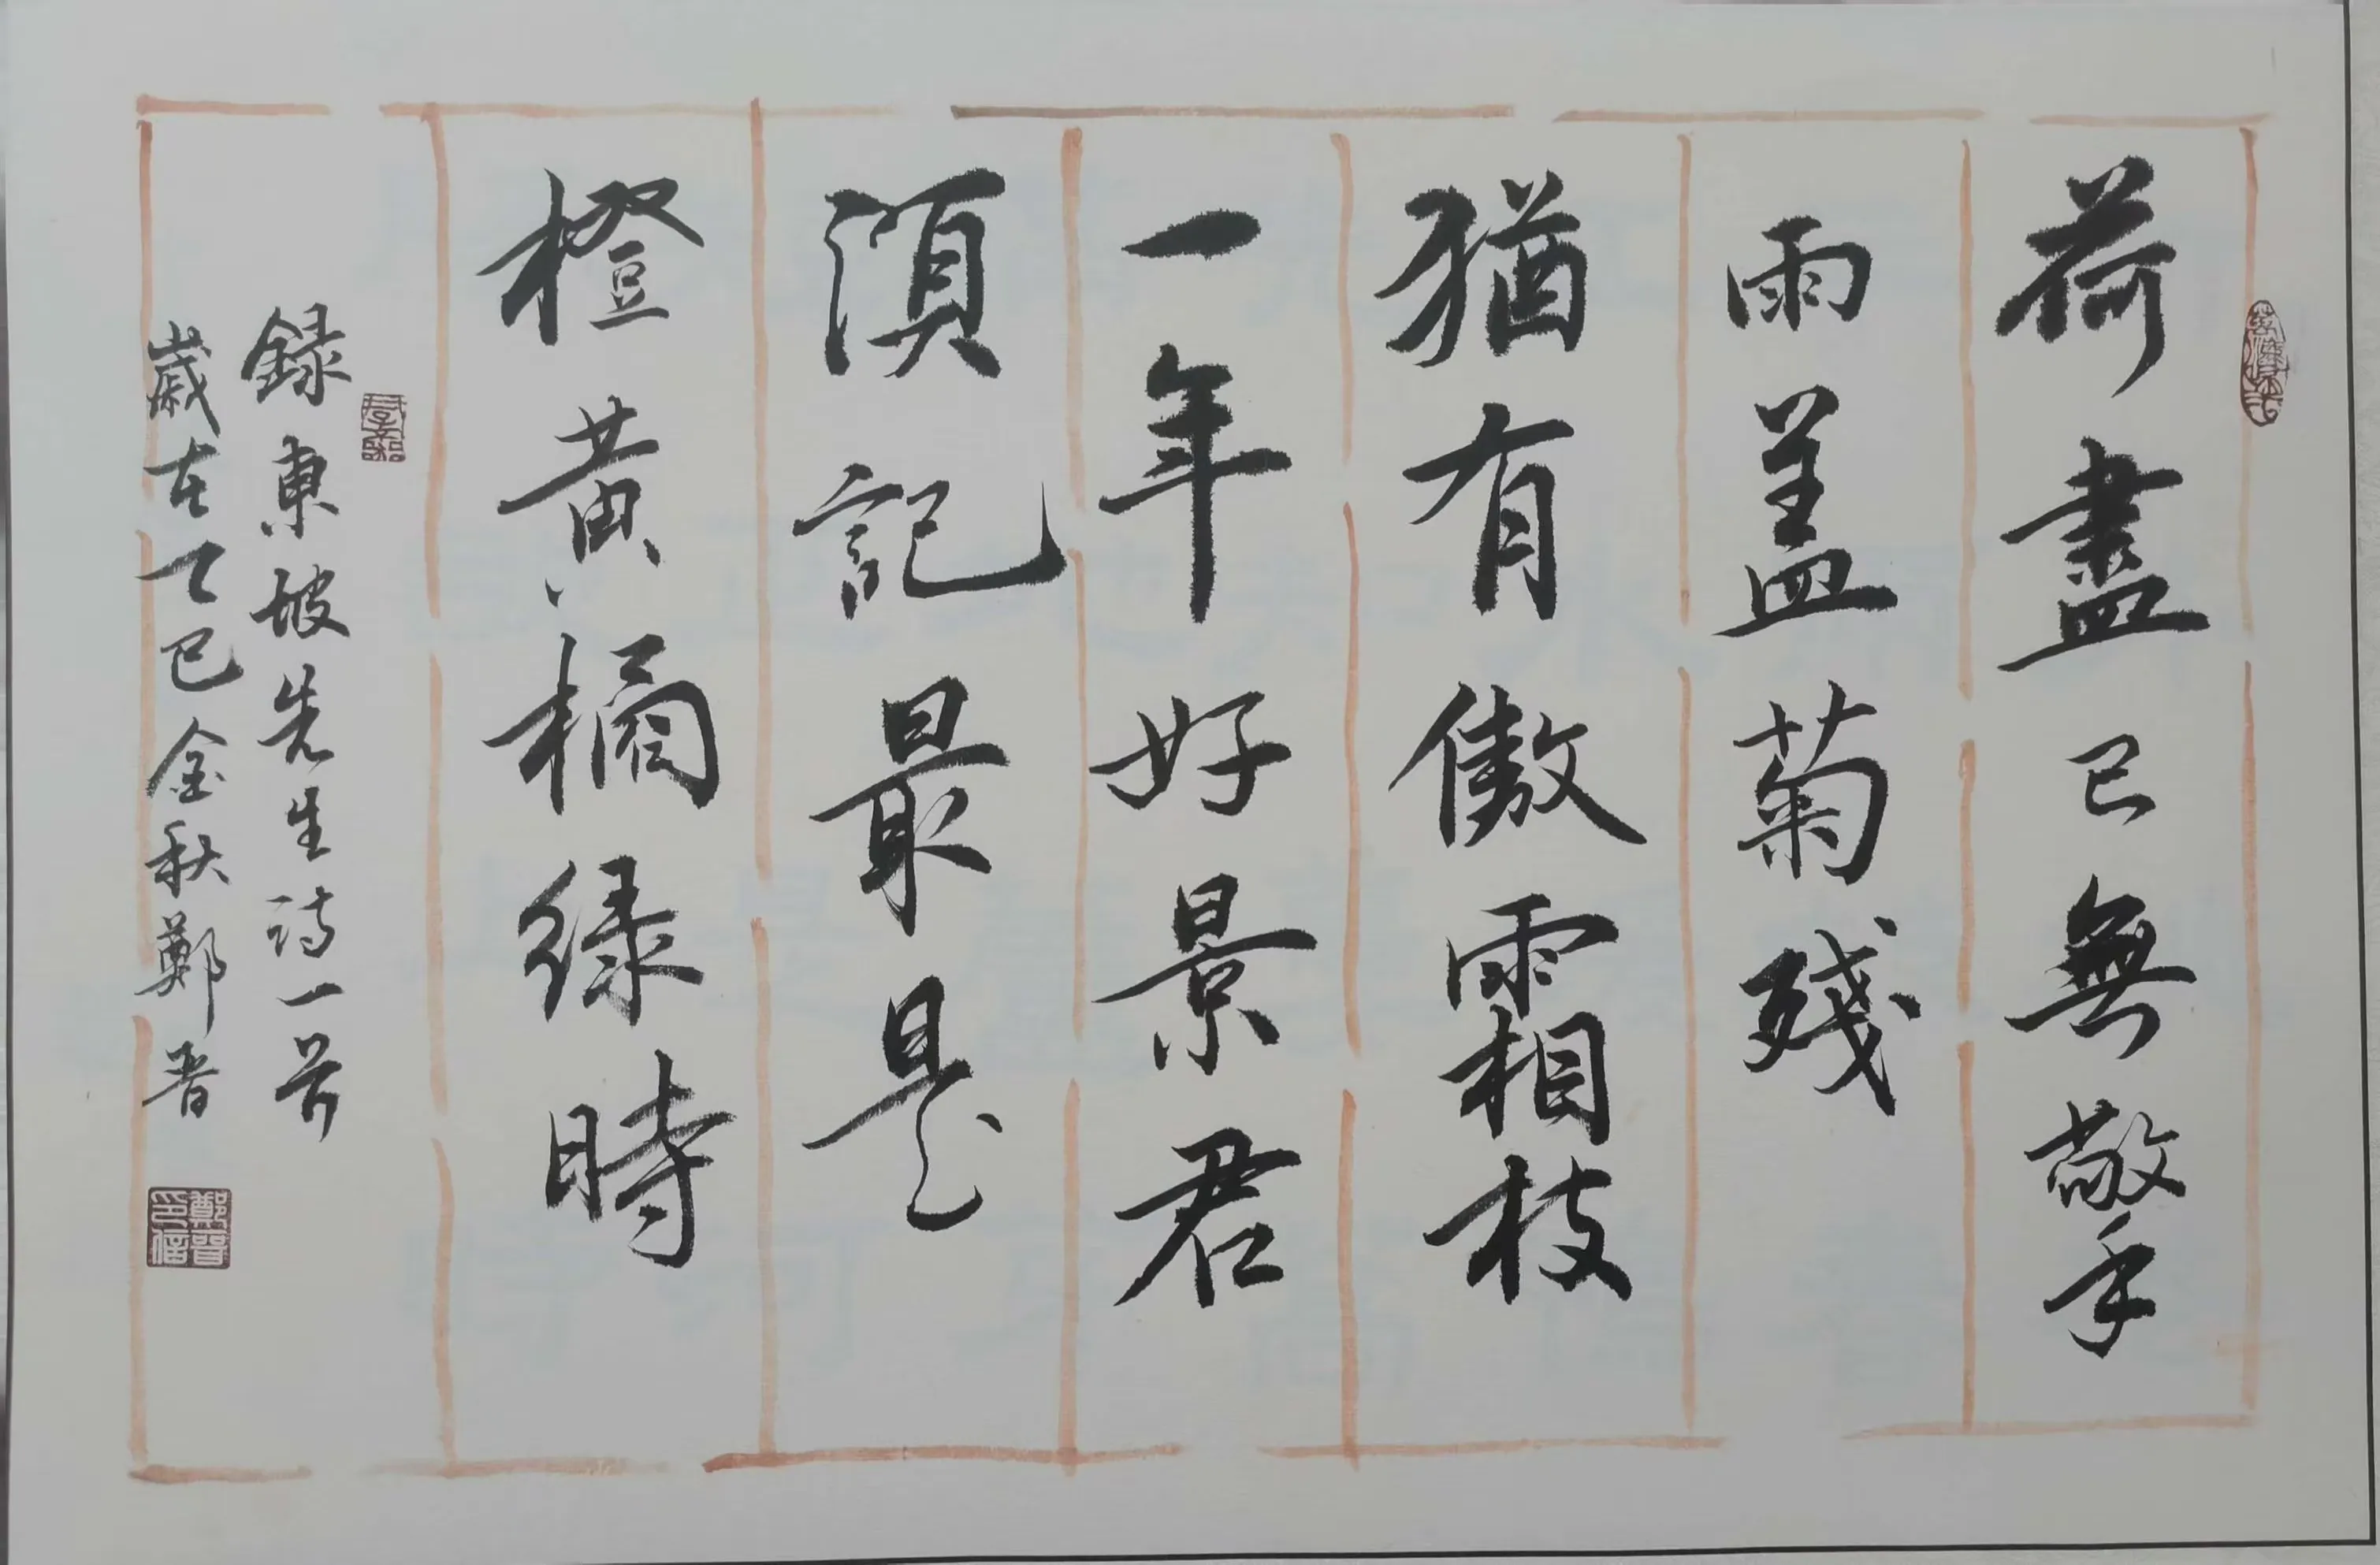 荷盡已無擎
雨盖菊殘
猶有傲霜枝
一年好景君
須記最是
橙黄橘緑時
録東坡先生詩一首
歲在乙巳金秋鄭晋
鄭晋印信